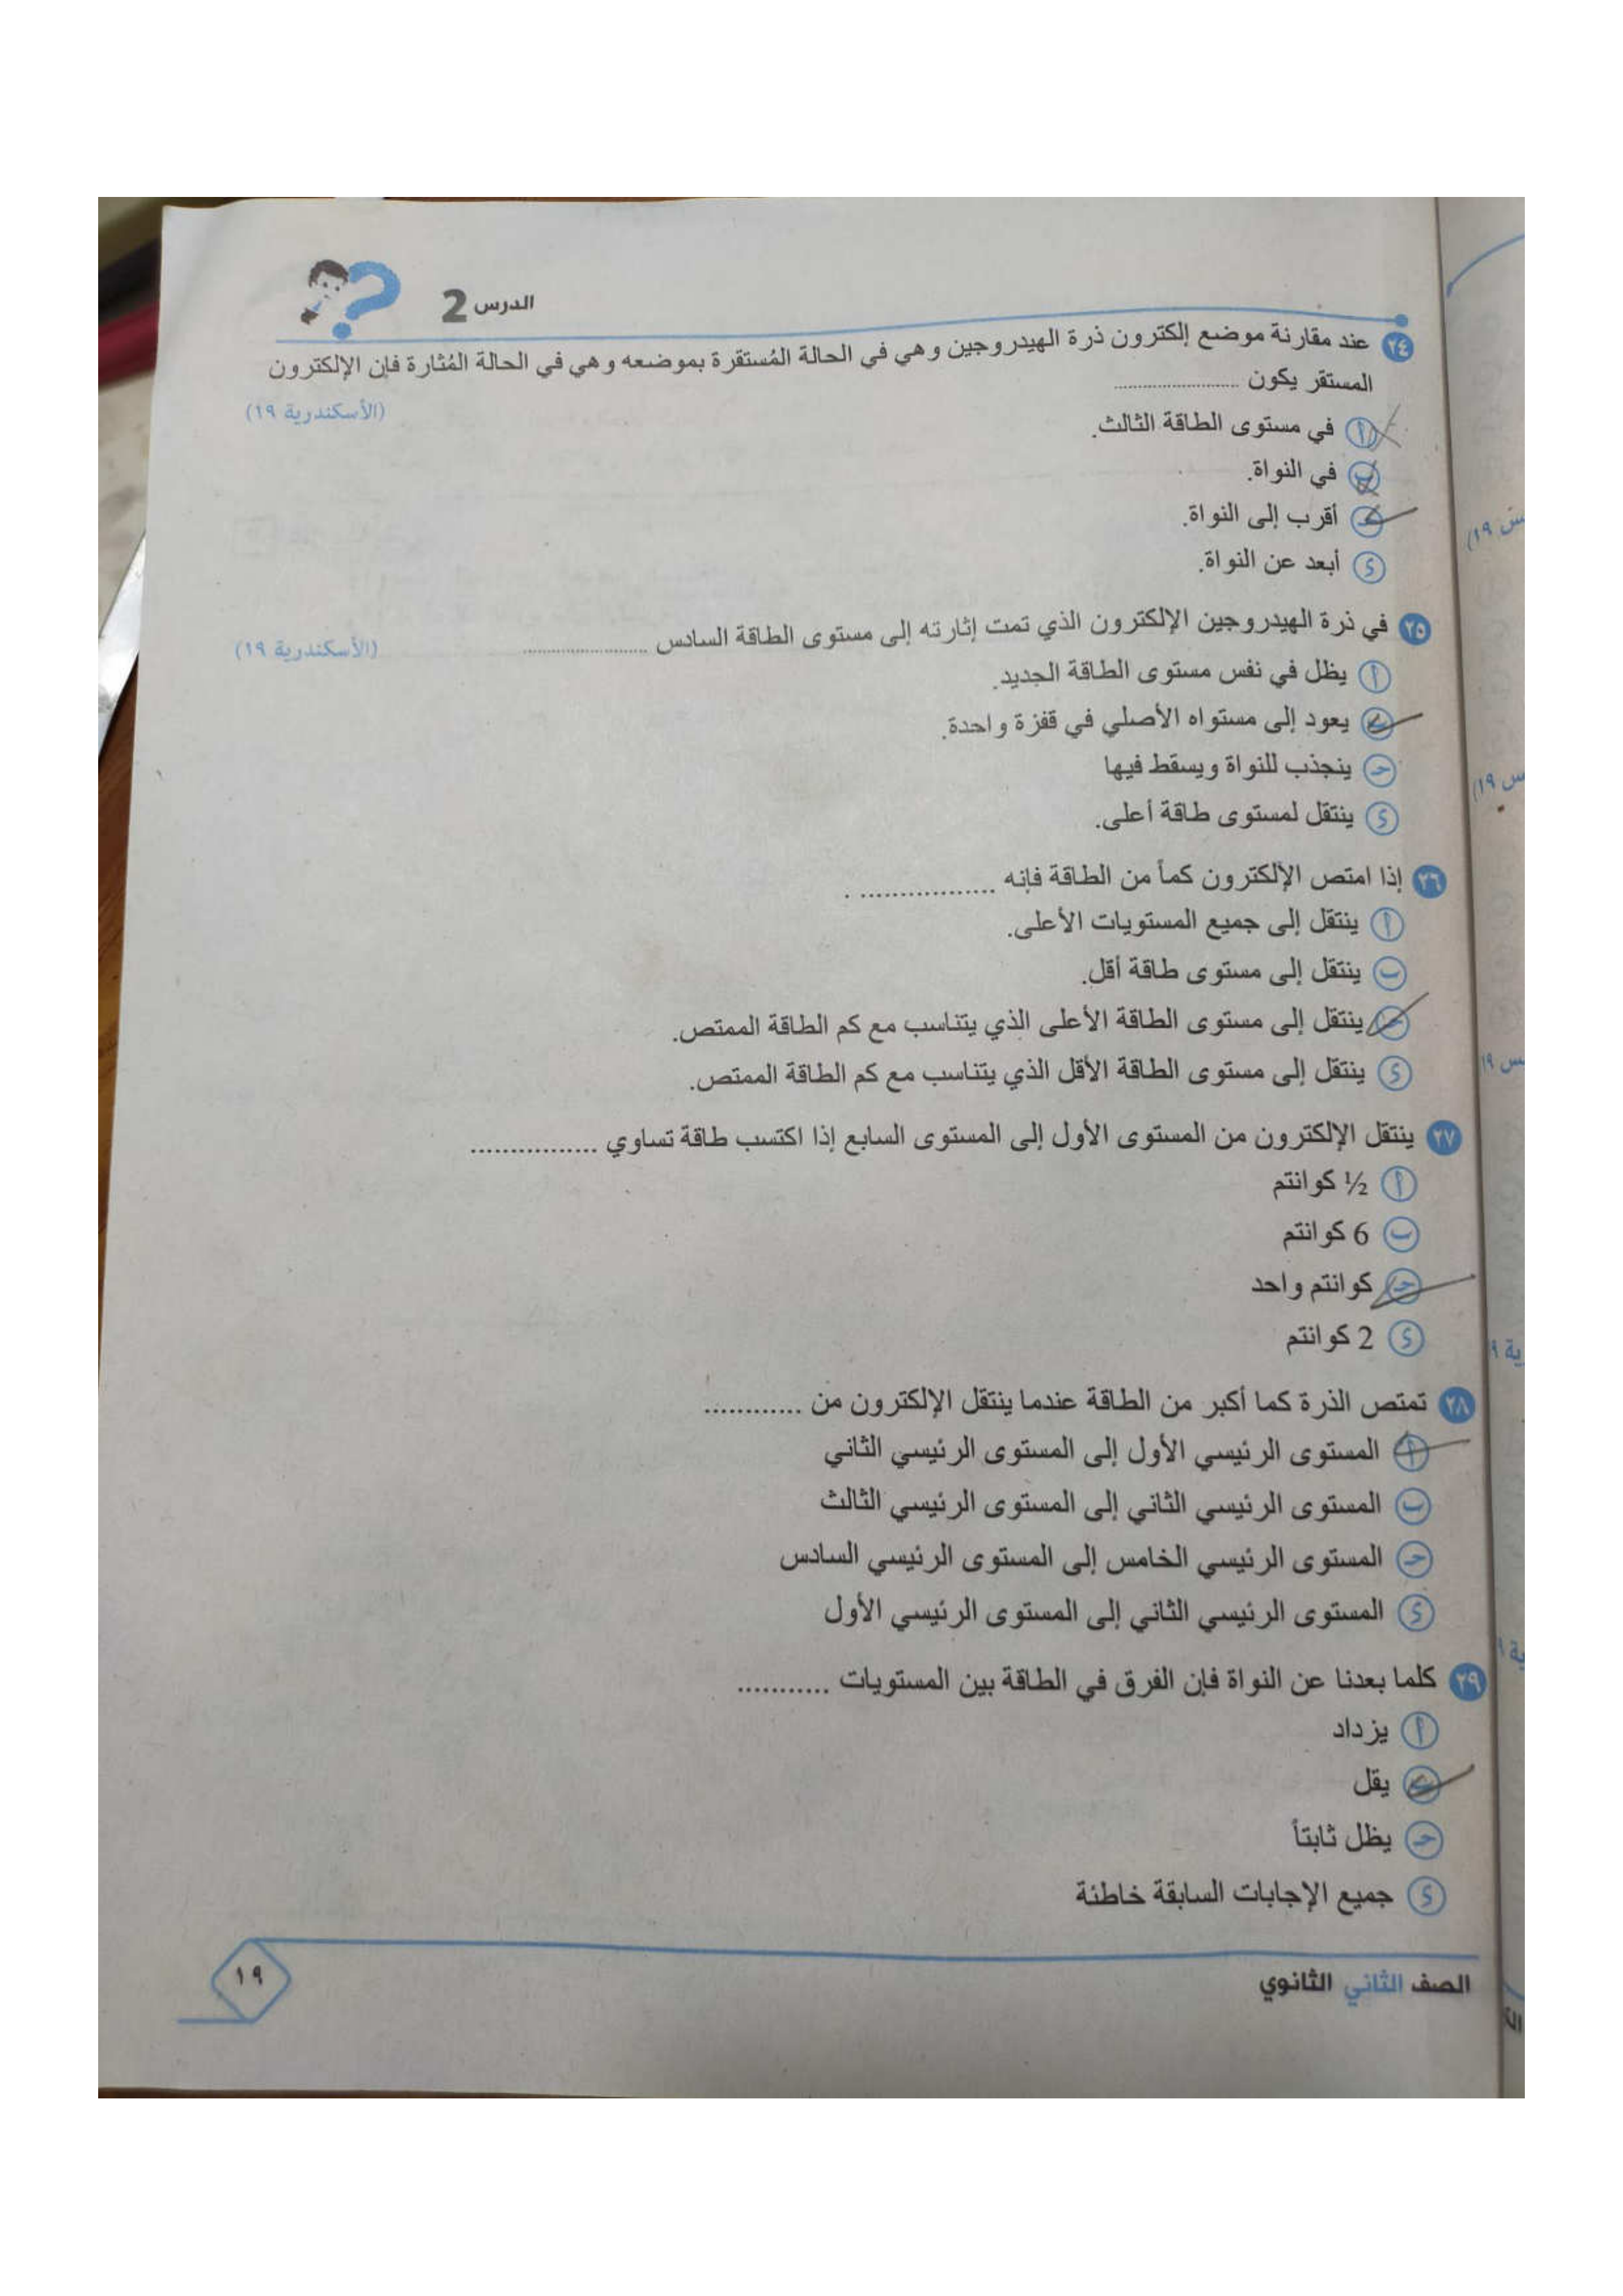 الدرس 2
٢٤ عند مقارنة موضع إلكترون ذرة الهيدروجين وهي في الحالة المُستقرة بموضعه وهي في الحالة المُثارة فإن الإلكترون
المستقر يكون ........................
(الأسكندرية ١٩)
أ في مستوى الطاقة الثالث.
ب في النواة.
جـ أقرب إلى النواة.
د أبعد عن النواة.
٢٥ في ذرة الهيدروجين الإلكترون الذي تمت إثارته إلى مستوى الطاقة السادس ........................ (الأسكندرية ١٩)
أ يظل في نفس مستوى الطاقة الجديد.
ب يعود إلى مستواه الأصلي في قفزة واحدة.
جـ ينجذب للنواة ويسقط فيها
د ينتقل لمستوى طاقة أعلى.
٢٦ إذا امتص الإلكترون كماً من الطاقة فإنه ................. .
أ ينتقل إلى جميع المستويات الأعلى.
ب ينتقل إلى مستوى طاقة أقل.
جـ ينتقل إلى مستوى الطاقة الأعلى الذي يتناسب مع كم الطاقة الممتص.
د ينتقل إلى مستوى الطاقة الأقل الذي يتناسب مع كم الطاقة الممتص.
٢٧ ينتقل الإلكترون من المستوى الأول إلى المستوى السابع إذا اكتسب طاقة تساوي ................
أ ½ كوانتم
ب 6 كوانتم
جـ كوانتم واحد
د 2 كوانتم
٢٨ تمتص الذرة كما أكبر من الطاقة عندما ينتقل الإلكترون من ............
أ المستوى الرئيسي الأول إلى المستوى الرئيسي الثاني
ب المستوى الرئيسي الثاني إلى المستوى الرئيسي الثالث
جـ المستوى الرئيسي الخامس إلى المستوى الرئيسي السادس
د المستوى الرئيسي الثاني إلى المستوى الرئيسي الأول
٢٩ كلما بعدنا عن النواة فإن الفرق في الطاقة بين المستويات ...........
أ يزداد
ب يقل
جـ يظل ثابتاً
د جميع الإجابات السابقة خاطئة
الصف الثاني الثانوي
١٩